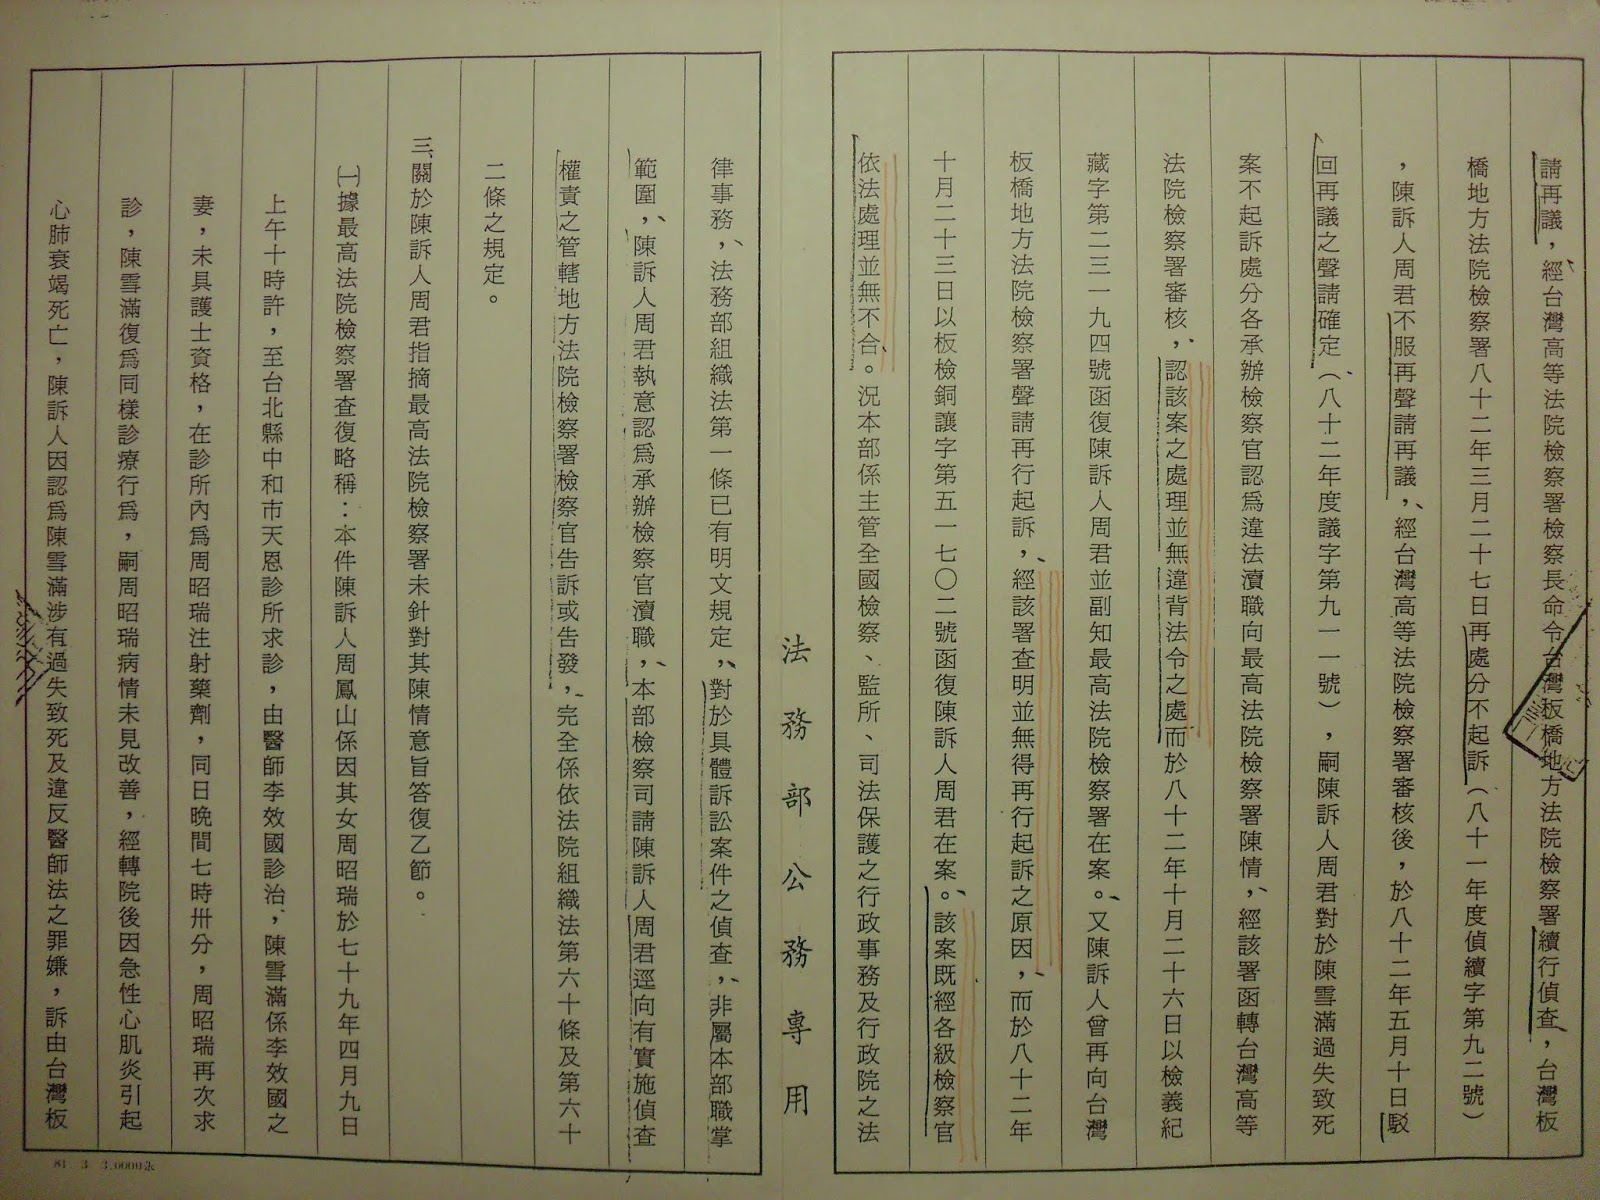 請再議，經台灣高等法院檢察署檢察長命令台灣板橋地方法院檢察署續行偵查，台灣板
橋地方法院檢察署八十二年三月二十七日再處分不起訴（八十一年度偵續字第九二號）
，陳訴人周君不服再聲請再議，經台灣高等法院檢察署審核後，於八十二年五月十日駁
回再議之聲請確定（八十二年度議字第九一一號），嗣陳訴人周君對於陳雪滿過失致死
案不起訴處分各承辦檢察官認為違法瀆職向最高法院檢察署陳情，經該署函轉台灣高等
法院檢察署審核，認該案之處理並無違背法令之處而於八十二年十月二十六日以檢義紀
藏字第二三一九四號函復陳訴人周君並副知最高法院檢察署在案。又陳訴人曾再向台灣
板橋地方法院檢察署聲請再行起訴，經該署查明並無得再行起訴之原因，而於八十二年
十月二十三日以板檢銅讓字第五一七〇二號函復陳訴人周君在案。該案既經各級檢察官
依法處理並無不合。況本部係主管全國檢察、監所、司法保護之行政事務及行政院之法
法務部公務專用
律事務，法務部組織法第一條已有明文規定，對於具體訴訟案件之偵查，非屬本部職掌
範圍，陳訴人周君執意認為承辦檢察官瀆職，本部檢察司請陳訴人周君逕向有實施偵查
權責之管轄地方法院檢察署檢察官告訴或告發，完全係依法院組織法第六十條及第六十
二條之規定。
三、關於陳訴人周君指摘最高法院檢察署未針對其陳情意旨答復乙節。
㈠據最高法院檢察署查復略稱：本件陳訴人周鳳山係因其女周昭瑞於七十九年四月九日
上午十時許，至台北縣中和市天恩診所求診，由醫師李效國診治，陳雪滿係李效國之
妻，未具護士資格，在診所內為周昭瑞注射藥劑，同日晚間七時卅分，周昭瑞再次求
診，陳雪滿復為同樣診療行為，嗣周昭瑞病情未見改善，經轉院後因急性心肌炎引起
心肺衰竭死亡，陳訴人因認為陳雪滿涉有過失致死及違反醫師法之罪嫌，訴由台灣板
81．3．3,000張